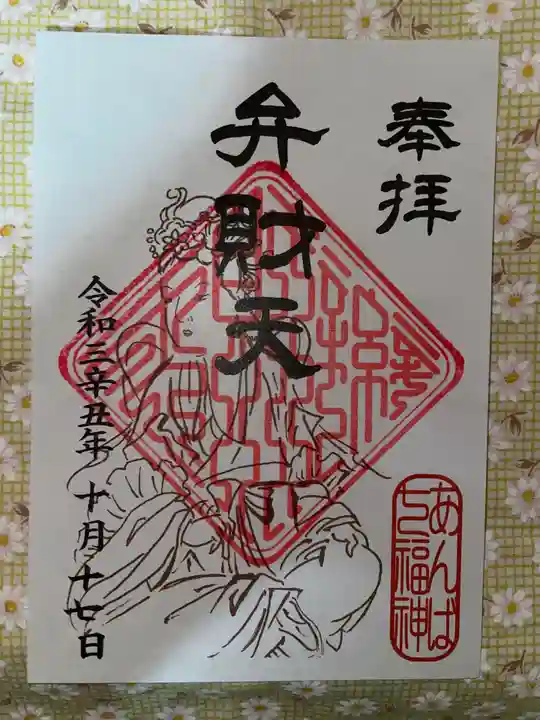 奉拝
弁財天
令和三辛丑年十月十七日
あんば
七福神